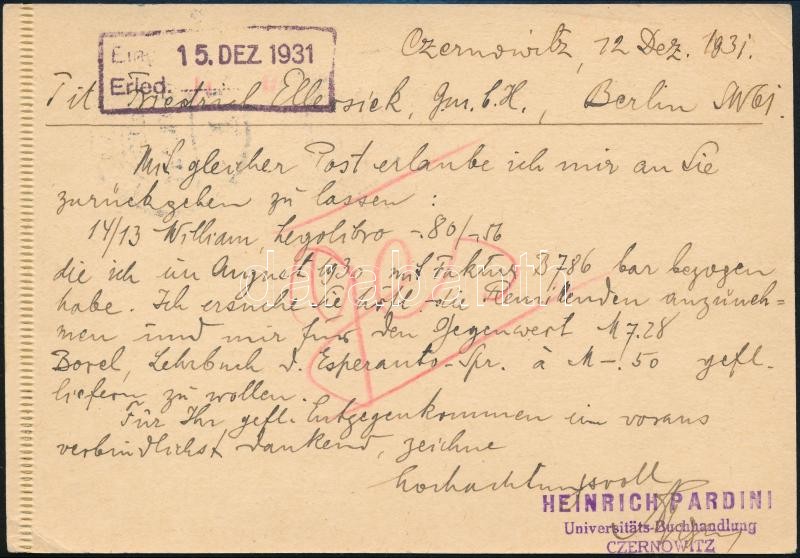 15. DEZ. 1931
Erled.
Czernowitz, 12 Dez. 1931.
Tit. Friedrich Ellersiek, Gm.b.H., Berlin SW61.
Mit gleicher Post erlaube ich mir an Sie
zurückgehen zu lassen:
14/13 William, Legolibro -.80/-.56
die ich im August 1930 mit Faktur B786 bar bezogen
habe. Ich ersuche Sie höfl. die Remittenden anzuneh=
men und mir für den Gegenwert M 7.28
Borel, Lehrbuch d. Esperanto-Spr. à M -.50 gefl.
liefern zu wollen.
Für Ihr gefl. Entgegenkommen im voraus
verbindlichst dankend, zeichne
hochachtungsvoll
HEINRICH PARDINI
Universitäts-Buchhandlung
CZERNOWITZ